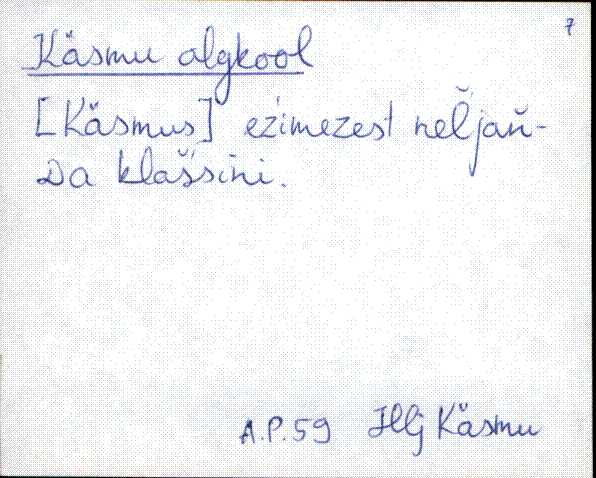 7
Käsmu algkool
[Käsmus] ezimezest nel̆jan̆-
Da klas̆s̆ini.
A.P.59 Hlj Käsmu